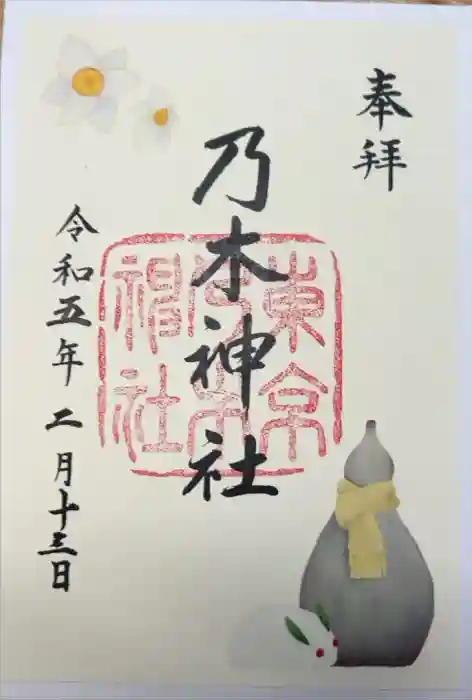 奉拝
乃木神社
東京
乃木
神社
令和五年二月十三日